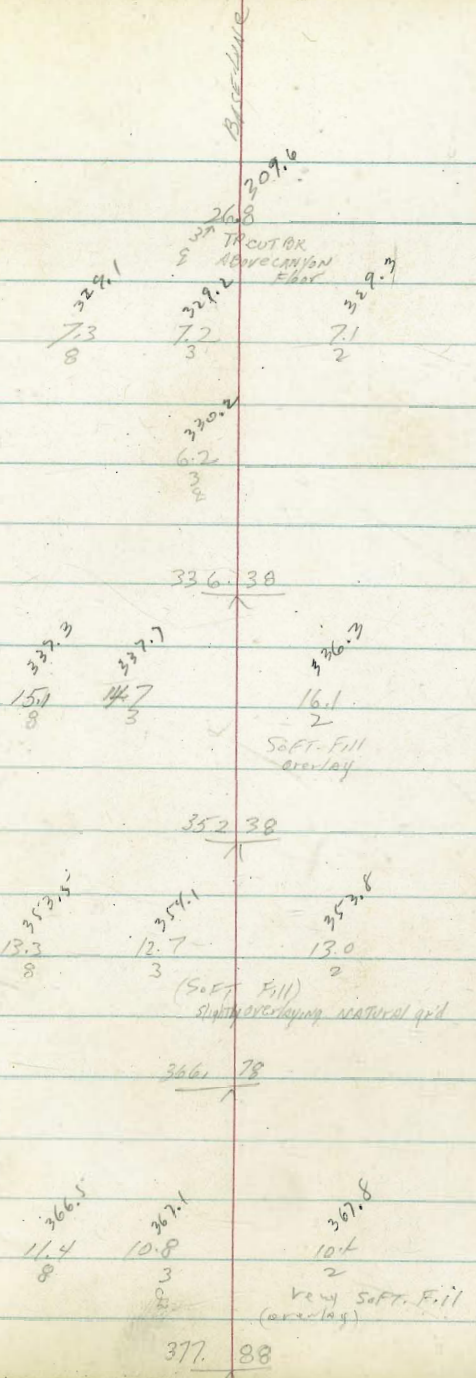 BASE-LINE
309.6
26.8
3
TP CUT BR
ABOVE CANYON
Floor
329.1 329.2 329.3
7.3 7.2 7.1
8 3 2
330.2
6.2
3
336.38
337.3 337.7 336.3
15.1 14.7 16.1
8 3 2
SOFT-Fill
overlay
352 38
353.5 354.1 353.8
13.3 12.7 13.0
8 3 2
(SOFT Fill)
slightly overlaying NATURAL grd
366. 78
366.5 367.1 367.8
11.4 10.8
8 3 2
very SOFT-Fill
(overlay)
377. 88